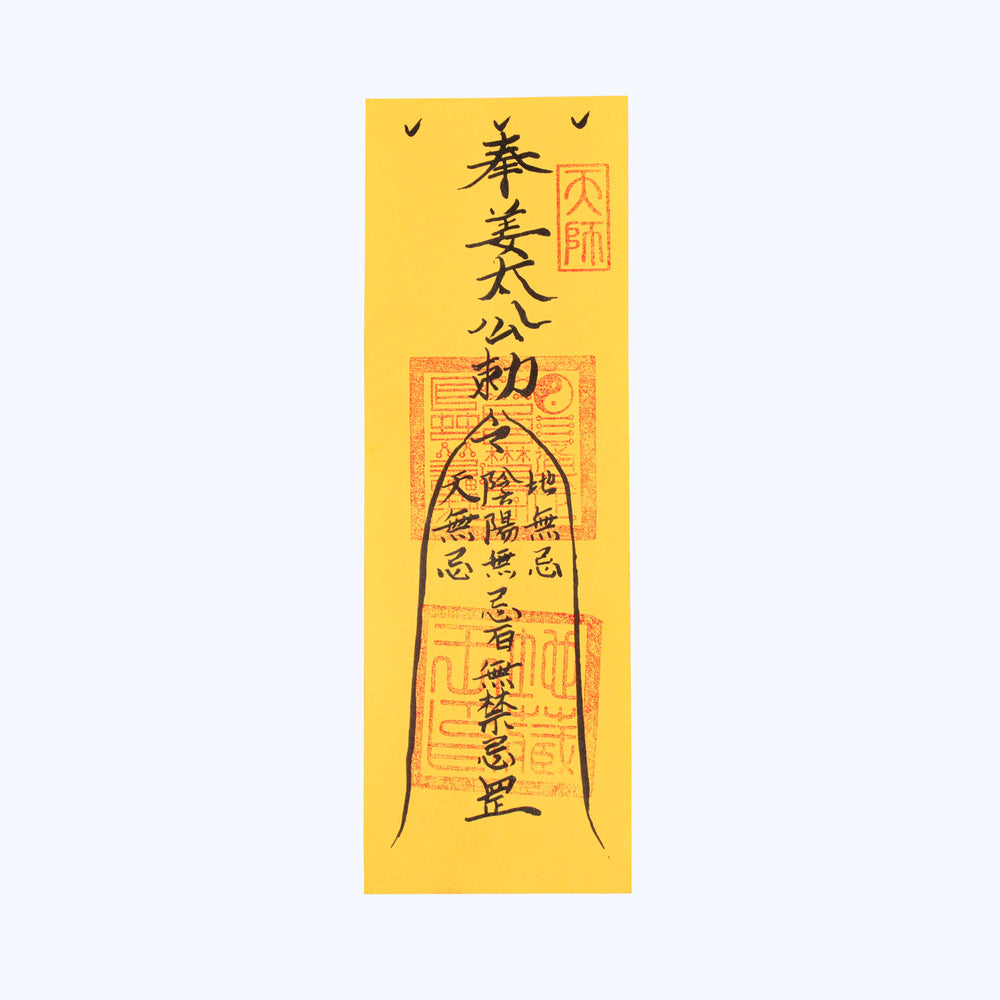 奉姜太公勅令
地無忌
陰陽無忌百無禁忌罡
天無忌
天師
地藏王印